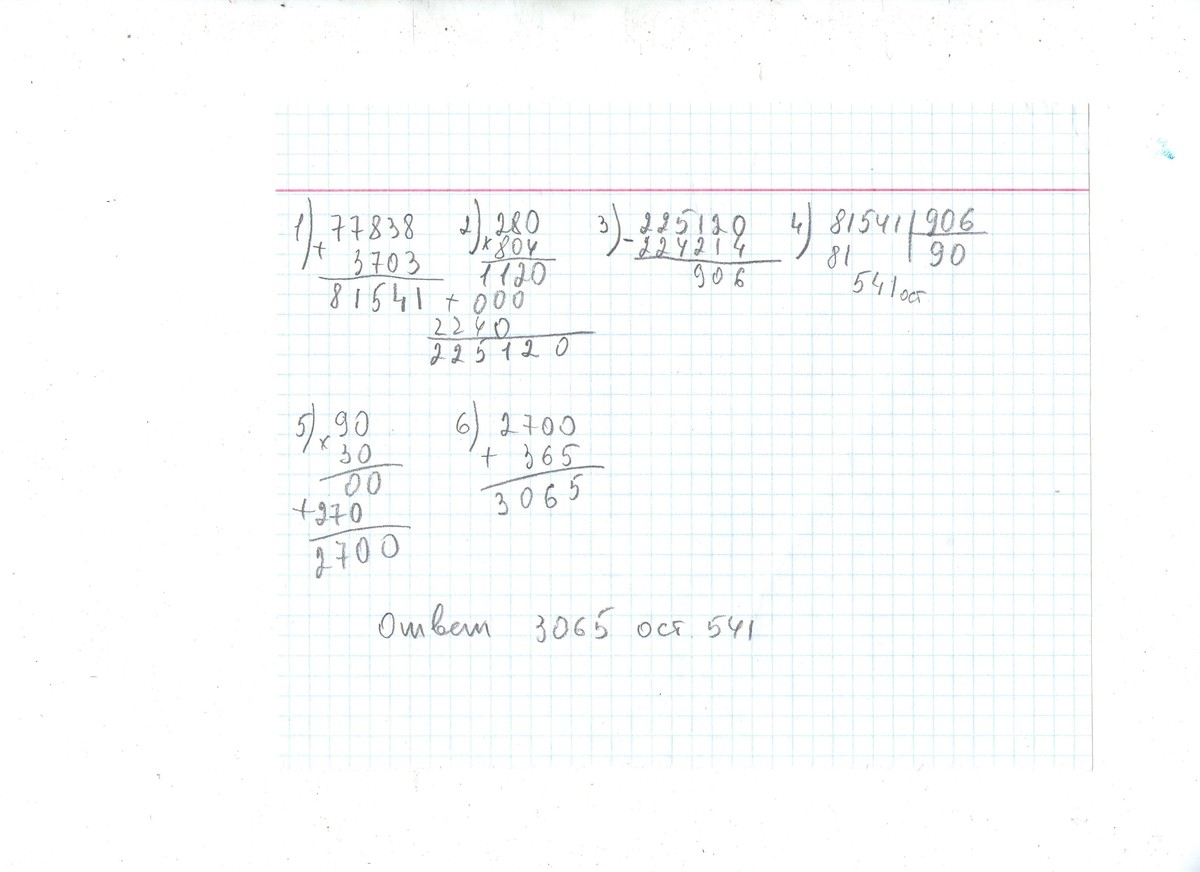 1) 77838 2) 280 3) 225120 4) 81541 906
+ 3703 × 804 - 224214 81 90
81541 1120 906 541 ост
+ 000
2240
225120
5) 90 6) 2700
× 30 + 365
00 3065
+ 270
2700
Ответ 3065 ост. 541